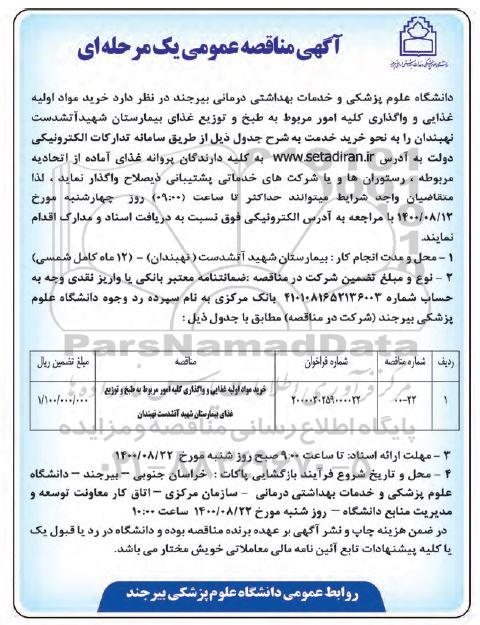 آگهی مناقصه عمومی یک مرحله ای
دانشگاه علوم پزشکی و خدمات بهداشتی درمانی بیرجند در نظر دارد خرید مواد اولیه
غذایی و واگذاری کلیه امور مربوط به طبخ و توزیع غذای بیمارستان شهیدآتشدست
نهبندان را به نحو خرید خدمت به شرح جدول ذیل از طریق سامانه تدارکات الکترونیکی
دولت به آدرس www.setadiran.ir به کلیه دارندگان پروانه غذای آماده از اتحادیه
مربوطه ، رستوران ها و یا شرکت های خدماتی پشتیبانی ذیصلاح واگذار نماید ، لذا
متقاضیان واجد شرایط میتوانند حداکثر تا ساعت (۰۹:۰۰) روز چهارشنبه مورخ
۱۴۰۰/۰۸/۱۲ با مراجعه به آدرس الکترونیکی فوق نسبت به دریافت اسناد و مدارک اقدام
نمایند.
۱ - محل و مدت انجام کار : بیمارستان شهید آتشدست ( نهبندان) - (۱۲ ماه کامل شمسی)
۲ - نوع و مبلغ تضمین شرکت در مناقصه :ضمانتنامه معتبر بانکی یا واریز نقدی وجه به
حساب شماره ۴۱۰۱۰۸۱۶۵۲۱۳۶۰۰۳ بانک مرکزی به نام سپرده رد وجوه دانشگاه علوم
پزشکی بیرجند (شرکت در مناقصه) مطابق با جدول ذیل :
ردیف شماره مناقصه شماره فراخوان مناقصه مبلغ تضمین ریال
۱ ۰۰-۲۲ ۲۰۰۰۰۳۰۲۵۹۰۰۰۰۲۲ خرید مواد اولیه غذایی و واگذاری کلیه امور مربوط به طبخ و توزیع ۱/۱۰۰/۰۰۰/۰۰۰
غذای بیمارستان شهید آتشدست نهبندان
ParsNamadData
پایگاه اطلاع رسانی مناقصه و مزایده
۳ - مهلت ارائه اسناد: تا ساعت ۹:۰۰ صبح روز شنبه مورخ ۱۴۰۰/۰۸/۲۲
۴ - محل و تاریخ شروع فرآیند بازگشایی پاکات : خراسان جنوبی – بیرجند – دانشگاه
علوم پزشکی و خدمات بهداشتی درمانی - سازمان مرکزی – اتاق کار معاونت توسعه و
مدیریت منابع دانشگاه – روز شنبه مورخ ۱۴۰۰/۰۸/۲۲ ساعت ۱۰:۰۰
در ضمن هزینه چاپ و نشر آگهی بر عهده برنده مناقصه بوده و دانشگاه در رد یا قبول یک
یا کلیه پیشنهادات تابع آئین نامه مالی معاملاتی خویش مختار می باشد.
روابط عمومی دانشگاه علوم پزشکی بیرجند